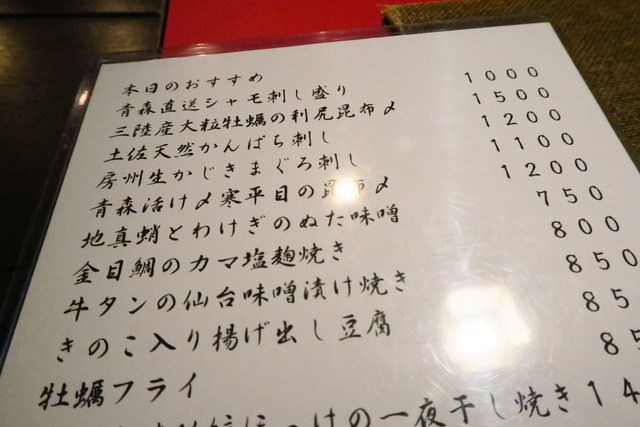 本日のおすすめ
青森直送シャモ刺し盛り 1000
三陸産大粒牡蠣の利尻昆布〆 1500
土佐天然かんぱち刺し 1200
房州生かじきまぐろ刺し 1100
青森活け〆寒平目の昆布〆 1200
地真蛸とわけぎのぬた味噌 750
金目鯛のカマ塩麹焼き 800
牛タンの仙台味噌漬け焼き 850
きのこ入り揚げ出し豆腐 85
牡蠣フライ 85
ほっけの一夜干し焼き 14